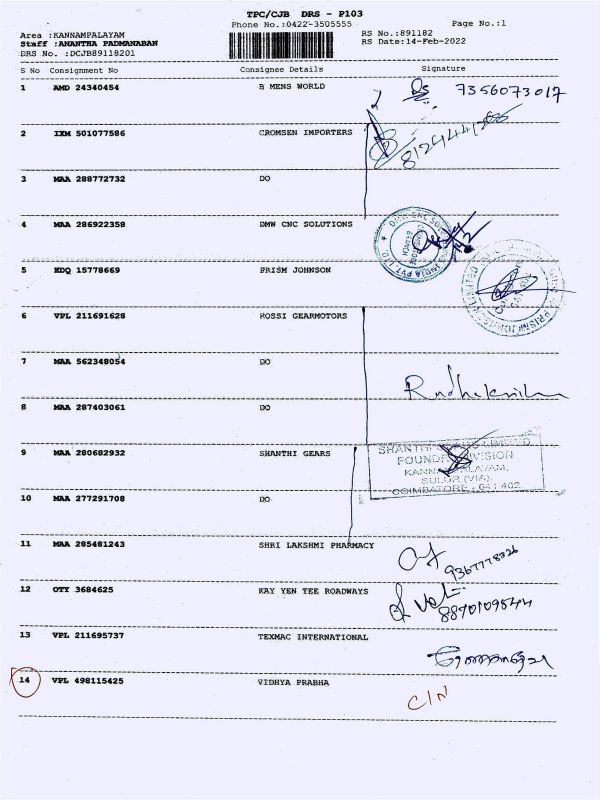 TPC/CJB DRS - P103
Phone No.:0422-3505555
Page No.:1
Area :KANNAMPALAYAM
RS No.:891182
Staff :ANANTHA PADMANABAN
RS Date:14-Feb-2022
DRS No. :DCJB89118201
S No Consignment No Consignee Details Signature
1 AMD 24340454 B MENS WORLD 7356073017
2 IXM 501077586 CROMSEN IMPORTERS
3 MAA 288772732 DO
4 MAA 286922358 DMW CNC SOLUTIONS
5 KDQ 15778669 PRISM JOHNSON
6 VPL 211691628 ROSSI GEARMOTORS
7 MAA 562348054 DO
8 MAA 287403061 DO
9 MAA 280682932 SHANTHI GEARS
LIMITED
FOUNDRY DIVISION
KANNAMPALAYAM,
SULUR (VIA),
COIMBATORE - 641 402.
10 MAA 277291708 DO
11 MAA 285481243 SHRI LAKSHMI PHARMACY
12 OTY 3684625 KAY YEN TEE ROADWAYS
13 VPL 211695737 TEXMAC INTERNATIONAL
14 VPL 498115425 VIDHYA PRABHA
C/N